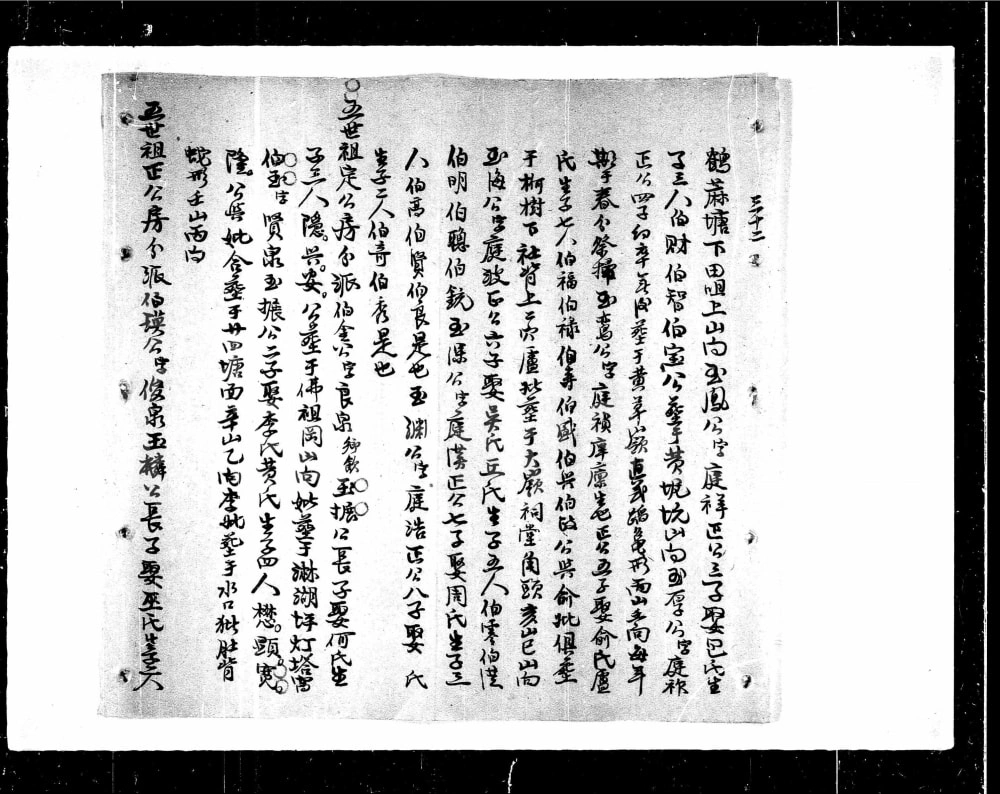 三十二
鶴蔴塘下田㽪上山向玉鳳公字庭祥正公三子娶巴氏生
子三人伯財伯智伯寅公葬于黄坭坑山向玉厚公字庭祚
正公四子幼卒無後葬于黄草嶺真武踏龜形丙山壬向每年
期于春分祭掃玉鸞公字庭禎庠廪生也正公五子娶俞氏盧
氏生子七人伯福伯禄伯壽伯盛伯興伯政公與俞妣俱葬
于柯樹下社背上二穴盧妣葬于大嶺祠堂角頭亥山巳山向
玉海公字庭波正公六子娶吴氏丘氏生子五人伯雲伯洪
伯明伯聰伯銳玉深公字庭廣正公七子娶周氏生子三
人伯高伯賢伯良是也玉渊公字庭浩正公八子娶 氏
生子二人伯奇伯秀是也
五世祖定公房分派伯金公字良泉鄉飲玉振公長子娶何氏生
子三人隱興安公葬于佛祖岡山向妣葬于淋湖坪灯塔窩
伯玉字賢泉玉振公二子娶李氏黄氏生子四人懋顕寬
隆公與妣合葬于廿四塘面辛山乙向李妣葬于水口社背
蛇形壬山丙向
五世祖正公房分派伯瑛公字俊泉玉麟公長子娶巫氏生子二人